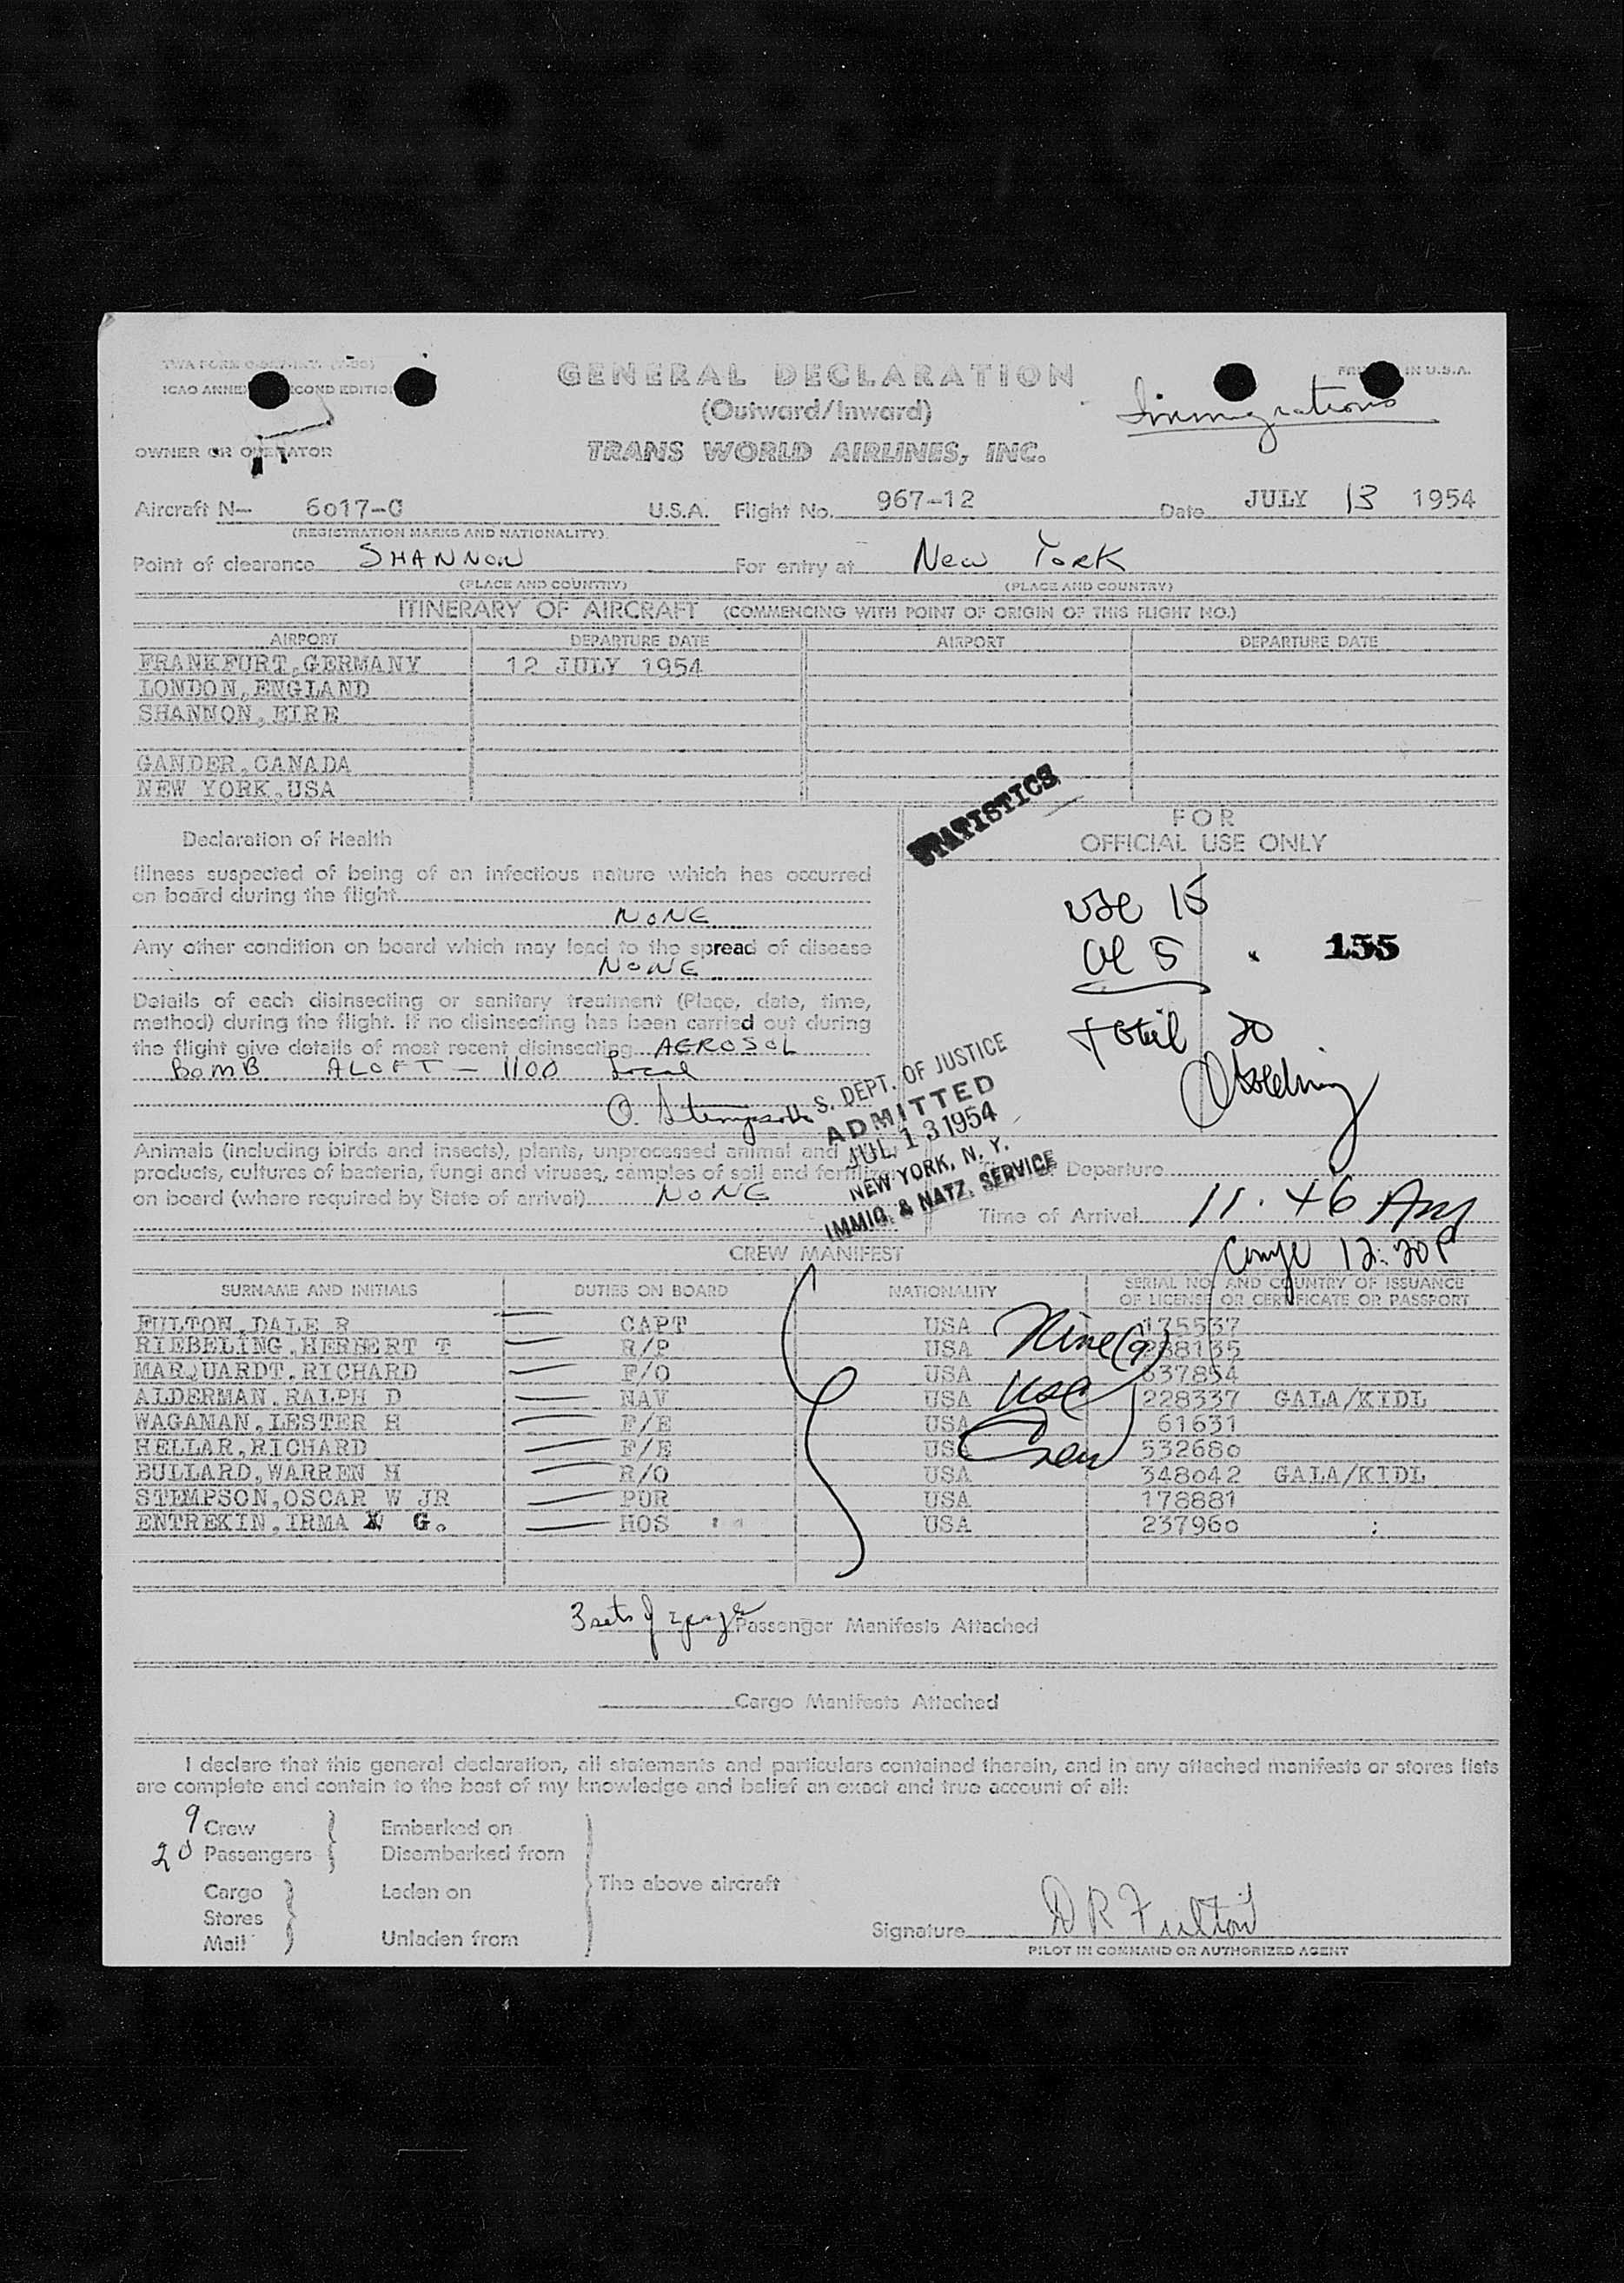 GENERAL DECLARATION
ICAO ANNEX SECOND EDITION
(Outward/Inward)
Immigrations
OWNER OR OPERATOR
TRANS WORLD AIRLINES, INC.
Aircraft N- 6017-C U.S.A. Flight No. 967-12 Date JULY 13 1954
(REGISTRATION MARKS AND NATIONALITY)
Point of clearance SHANNON For entry at New York
(PLACE AND COUNTRY) (PLACE AND COUNTRY)
ITINERARY OF AIRCRAFT (COMMENCING WITH POINT OF ORIGIN OF THIS FLIGHT NO.)
AIRPORT DEPARTURE DATE AIRPORT DEPARTURE DATE
FRANKFURT,GERMANY 12 JULY 1954
LONDON,ENGLAND
SHANNON,EIRE
GANDER,CANADA
NEW YORK,USA
STATISTICS
FOR
OFFICIAL USE ONLY
Declaration of Health
Illness suspected of being of an infectious nature which has occurred
on board during the flight
NONE
Any other condition on board which may lead to the spread of disease
NONE
Details of each disinsecting or sanitary treatment (Place, date, time,
method) during the flight. If no disinsecting has been carried out during
the flight give details of most recent disinsecting AEROSOL
BOMB ALOFT - 1100 Local
O. Stempson
USC 15
Al 5
155
Total 20
S. DEPT. OF JUSTICE
ADMITTED
JUL 13 1954
NEW YORK, N. Y.
IMMIG. & NATZ. SERVICE
Animals (including birds and insects), plants, unprocessed animal and
products, cultures of bacteria, fungi and viruses, samples of soil and fertilizer
on board (where required by State of arrival) NONE
Departure
Time of Arrival 11.46 AM
12:20P
CREW MANIFEST
SURNAME AND INITIALS DUTIES ON BOARD NATIONALITY SERIAL NO. AND COUNTRY OF ISSUANCE
OF LICENSE OR CERTIFICATE OR PASSPORT
FULTON,DALE R CAPT USA 175537
RIEBELING,HERBERT T R/P USA 288135
MARQUARDT,RICHARD F/O USA 637854
ALDERMAN,RALPH D NAV USA 228337 GALA/KIDL
WAGAMAN,LESTER H F/E USA 61631
HELLAR,RICHARD F/E USA 532680
BULLARD,WARREN H R/O USA 348042 GALA/KIDL
STEMPSON,OSCAR W JR PUR USA 178881
ENTREKIN,IRMA G. HOS USA 237960
Nine (9)
USC
Crew
3 sets of Passenger Manifests Attached
Cargo Manifests Attached
I declare that this general declaration, all statements and particulars contained therein, and in any attached manifests or stores lists
are complete and contain to the best of my knowledge and belief an exact and true account of all:
9 Crew Embarked on
20 Passengers Disembarked from
The above aircraft
Cargo Laden on
Stores
Mail Unladen from
Signature D R Fulton
PILOT IN COMMAND OR AUTHORIZED AGENT